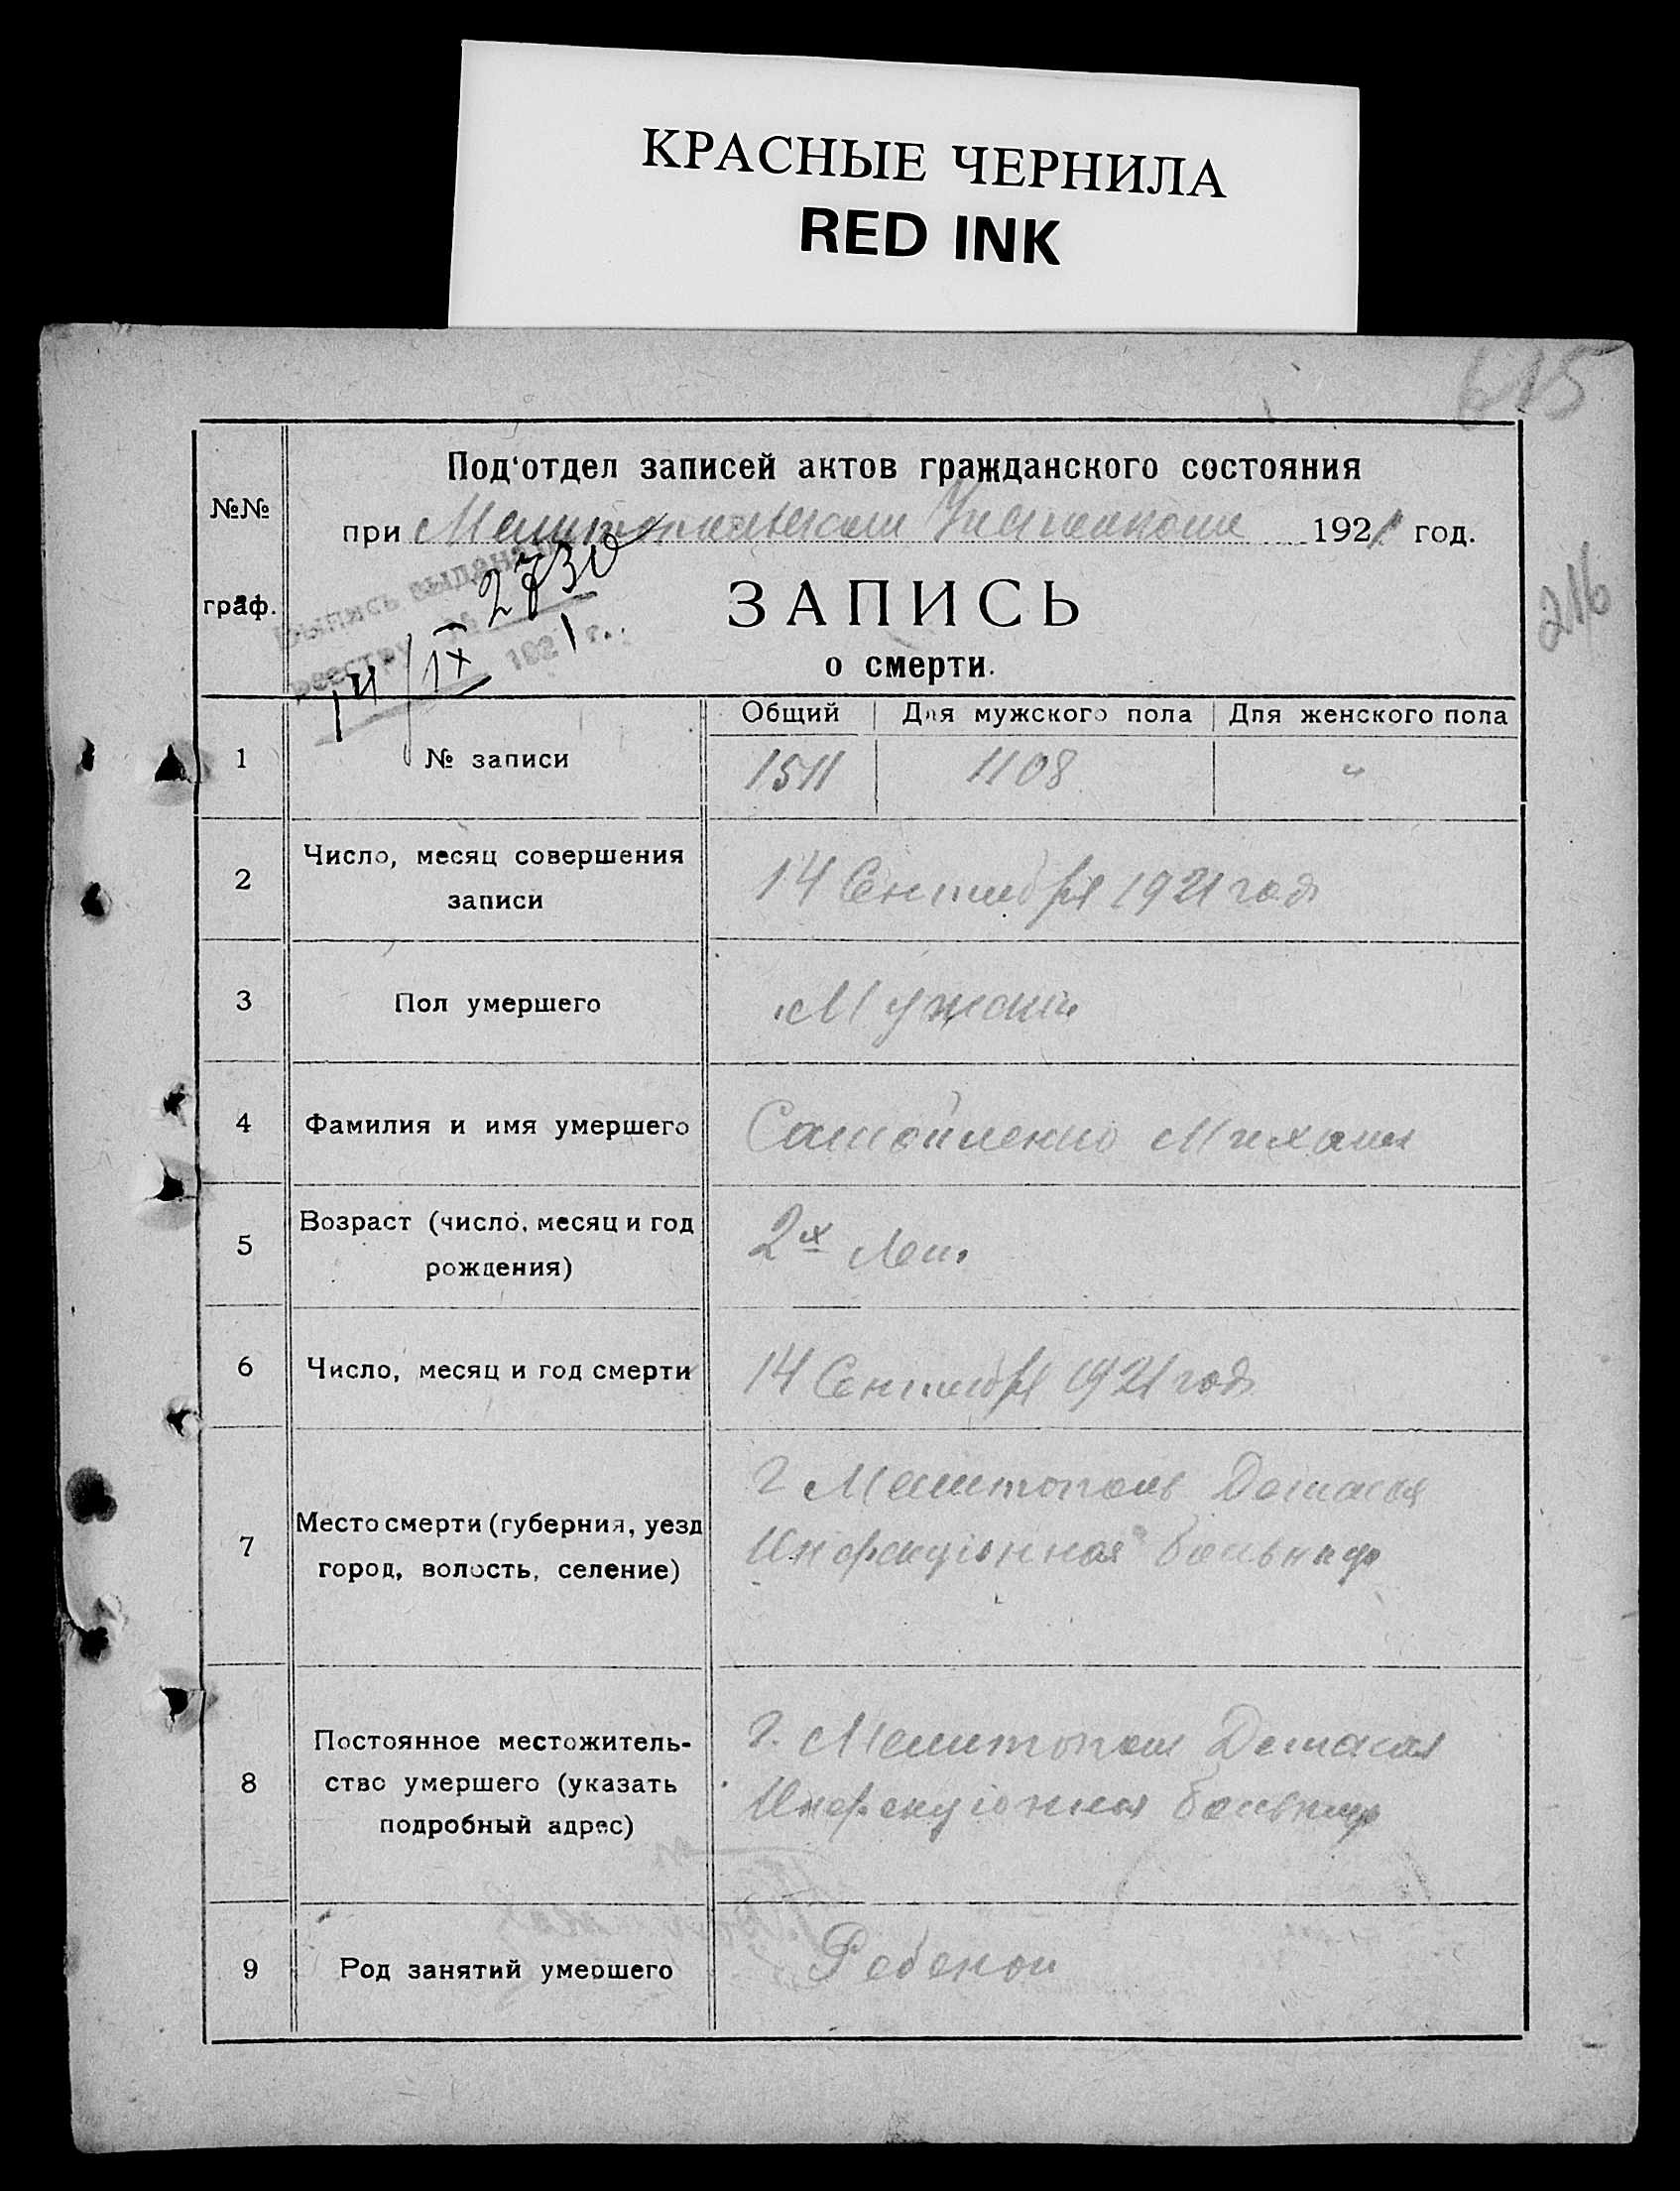 КРАСНЫЕ ЧЕРНИЛА
RED INK
615
№№ граф.
Под‘отдел записей актов гражданского состояния
при Мелитопольском 1921 год.
216
Выпись выдана по
реестру № 2730
14/IX 1921 г.
ЗАПИСЬ
о смерти.
Общий Для мужского пола Для женского пола
1 № записи 1511 1108 "
2 Число, месяц совершения
записи
14 Сентября 1921 года
3 Пол умершего Мужской
4 Фамилия и имя умершего Самойленко Михаил
5 Возраст (число, месяц и год
рождения)
2х лет.
6 Число, месяц и год смерти 14 Сентября 1921 года
7 Место смерти (губерния, уезд
город, волость, селение)
г Мелитополь Детская
Инфекціонная больница
8 Постоянное местожитель-
ство умершего (указать
подробный адрес)
г. Мелитополь Детская
Инфекціонная больница
9 Род занятий умершего Ребенок